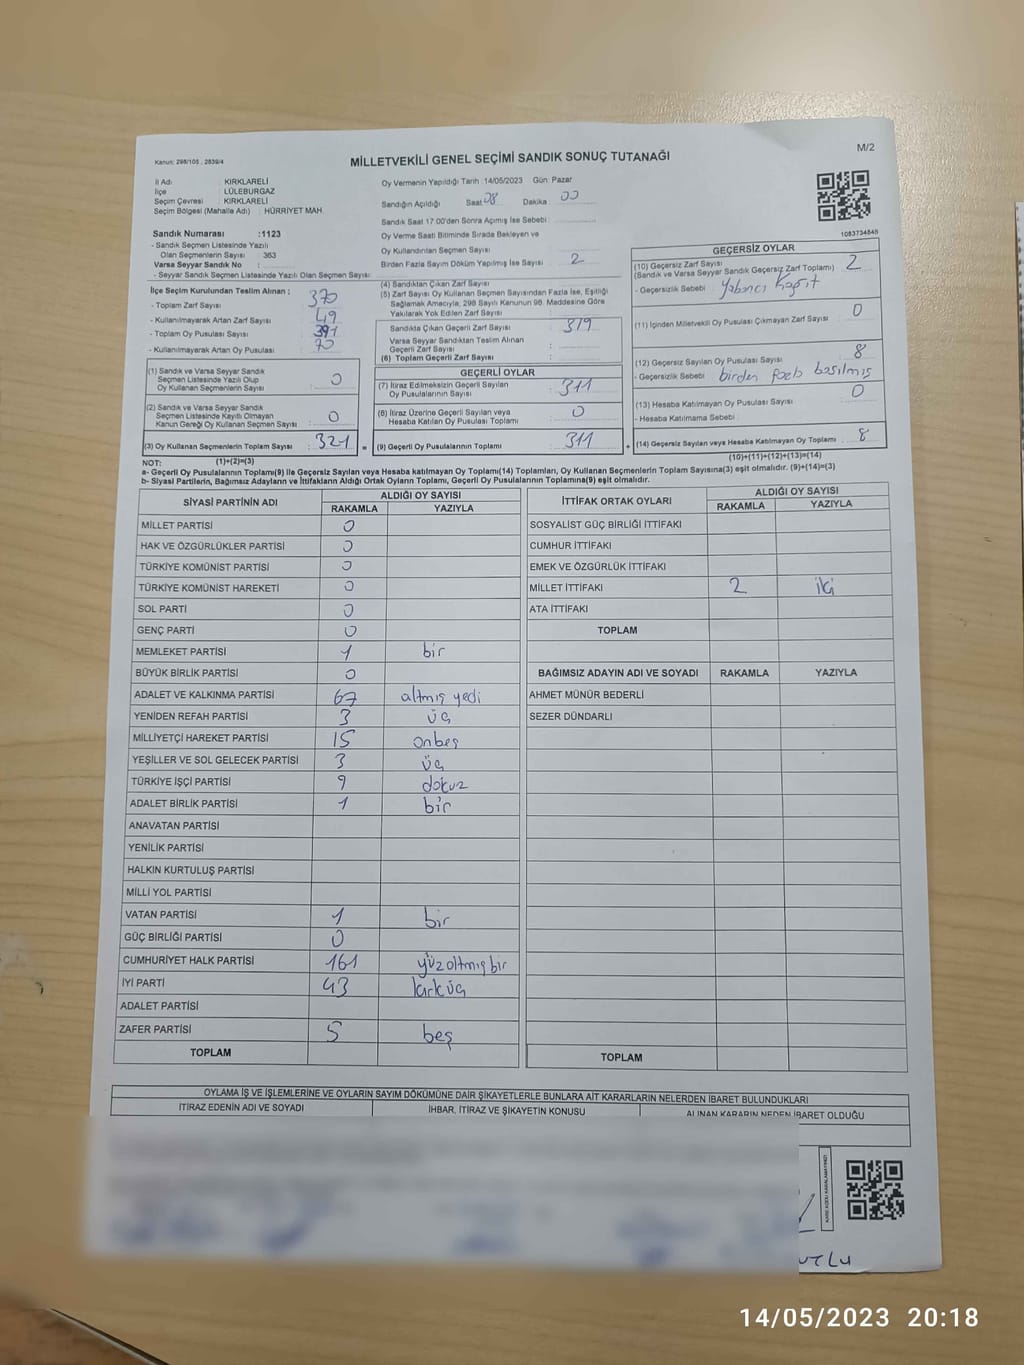 Kanun: 298/105 , 2839/4
MİLLETVEKİLİ GENEL SEÇİMİ SANDIK SONUÇ TUTANAĞI
M/2
İl Adı : KIRKLARELİ
İlçe : LÜLEBURGAZ
Seçim Çevresi : KIRKLARELİ
Seçim Bölgesi (Mahalle Adı) : HÜRRİYET MAH.
Sandık Numarası :1123
- Sandık Seçmen Listesinde Yazılı
Olan Seçmenlerin Sayısı : 363
Varsa Seyyar Sandık No :
- Seyyar Sandık Seçmen Listesinde Yazılı Olan Seçmen Sayısı:
İlçe Seçim Kurulundan Teslim Alınan ;
- Toplam Zarf Sayısı : 370
- Kullanılmayarak Artan Zarf Sayısı : 49
- Toplam Oy Pusulası Sayısı : 391
- Kullanılmayarak Artan Oy Pusulası : 70
(1) Sandık ve Varsa Seyyar Sandık
Seçmen Listesinde Yazılı Olup
Oy Kullanan Seçmenlerin Sayısı : 0
(2) Sandık ve Varsa Seyyar Sandık
Seçmen Listesinde Kayıtlı Olmayan
Kanun Gereği Oy Kullanan Seçmen Sayısı : 0
(3) Oy Kullanan Seçmenlerin Toplam Sayısı : 321 =
Oy Vermenin Yapıldığı Tarih :14/05/2023 Gün: Pazar
Sandığın Açıldığı Saat 08 Dakika 00
Sandık Saat 17.00'den Sonra Açımış İse Sebebi :
Oy Verme Saati Bitiminde Sırada Bekleyen ve
Oy Kullandırılan Seçmen Sayısı :
Birden Fazla Sayım Döküm Yapılmış İse Sayısı : 2
(4) Sandıktan Çıkan Zarf Sayısı :
(5) Zarf Sayısı Oy Kullanan Seçmen Sayısından Fazla İse, Eşitliği
Sağlamak Amacıyla, 298 Sayılı Kanunun 98. Maddesine Göre
Yakılarak Yok Edilen Zarf Sayısı :
Sandıkla Çıkan Geçerli Zarf Sayısı : 319
Varsa Seyyar Sandıktan Teslim Alınan
Geçerli Zarf Sayısı :
(6) Toplam Geçerli Zarf Sayısı :
GEÇERLİ OYLAR
(7) İtiraz Edilmeksizin Geçerli Sayılan
Oy Pusulalarının Sayısı : 311
(8) İtiraz Üzerine Geçerli Sayılan veya
Hesaba Katılan Oy Pusulası Toplamı : 0
(9) Geçerli Oy Pusulalarının Toplamı : 311 +
1083734848
GEÇERSİZ OYLAR
(10) Geçersiz Zarf Sayısı : 2
(Sandık ve Varsa Seyyar Sandık Geçersiz Zarf Toplamı)
- Geçersizlik Sebebi : Yabancı Kağıt
(11) İçinden Milletvekili Oy Pusulası Çıkmayan Zarf Sayısı : 0
(12) Geçersiz Sayılan Oy Pusulası Sayısı : 8
- Geçersizlik Sebebi : birden fazla basılmış
(13) Hesaba Katılmayan Oy Pusulası Sayısı : 0
- Hesaba Katılmama Sebebi :
(14) Geçersiz Sayılan veya Hesaba Katılmayan Oy Toplamı : 8
NOT: (1)+(2)=(3)
(10)+(11)+(12)+(13)=(14)
a- Geçerli Oy Pusulalarının Toplamı(9) ile Geçersiz Sayılan veya Hesaba katılmayan Oy Toplamı(14) Toplamları, Oy Kullanan Seçmenlerin Toplam Sayısına(3) eşit olmalıdır. (9)+(14)=(3)
b- Siyasi Partilerin, Bağımsız Adayların ve İttifakların Aldığı Ortak Oyların Toplamı, Geçerli Oy Pusulalarının Toplamına(9) eşit olmalıdır.
SİYASİ PARTİNİN ADI ALDIĞI OY SAYISI
RAKAMLA YAZIYLA
MİLLET PARTİSİ 0
HAK VE ÖZGÜRLÜKLER PARTİSİ 0
TÜRKİYE KOMÜNİST PARTİSİ 0
TÜRKİYE KOMÜNİST HAREKETİ 0
SOL PARTİ 0
GENÇ PARTİ 0
MEMLEKET PARTİSİ 1 bir
BÜYÜK BİRLİK PARTİSİ 0
ADALET VE KALKINMA PARTİSİ 67 altmış yedi
YENİDEN REFAH PARTİSİ 3 üç
MİLLİYETÇİ HAREKET PARTİSİ 15 onbeş
YEŞİLLER VE SOL GELECEK PARTİSİ 3 üç
TÜRKİYE İŞÇİ PARTİSİ 9 dokuz
ADALET BİRLİK PARTİSİ 1 bir
ANAVATAN PARTİSİ
YENİLİK PARTİSİ
HALKIN KURTULUŞ PARTİSİ
MİLLİ YOL PARTİSİ
VATAN PARTİSİ 1 bir
GÜÇ BİRLİĞİ PARTİSİ 0
CUMHURİYET HALK PARTİSİ 161 yüzaltmışbir
İYİ PARTİ 43 kırküç
ADALET PARTİSİ
ZAFER PARTİSİ 5 beş
TOPLAM
İTTİFAK ORTAK OYLARI ALDIĞI OY SAYISI
RAKAMLA YAZIYLA
SOSYALİST GÜÇ BİRLİĞİ İTTİFAKI
CUMHUR İTTİFAKI
EMEK VE ÖZGÜRLÜK İTTİFAKI
MİLLET İTTİFAKI 2 iki
ATA İTTİFAKI
TOPLAM
BAĞIMSIZ ADAYIN ADI VE SOYADI RAKAMLA YAZIYLA
AHMET MÜNÜR BEDERLİ
SEZER DÜNDARLI
TOPLAM
OYLAMA İŞ VE İŞLEMLERİNE VE OYLARIN SAYIM DÖKÜMÜNE DAİR ŞİKAYETLERLE BUNLARA AİT KARARLARIN NELERDEN İBARET BULUNDUKLARI
İTİRAZ EDENİN ADI VE SOYADI İHBAR, İTİRAZ VE ŞİKAYETİN KONUSU ALINAN KARARIN NEDEN İBARET OLDUĞU
14/05/2023 20:18